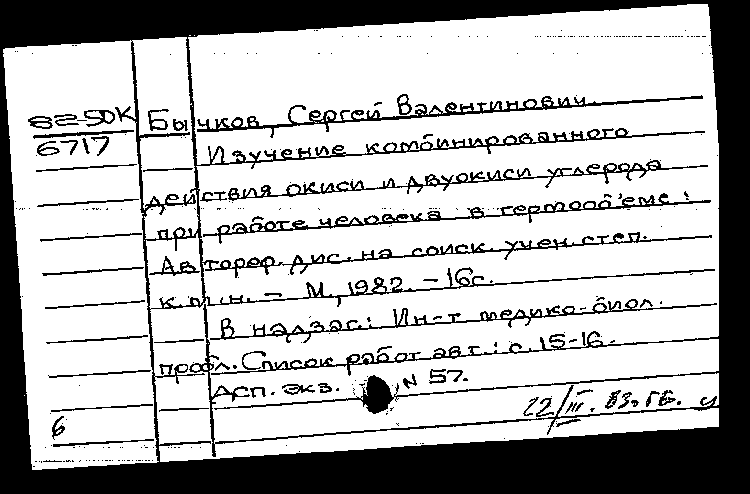 82-50К Бычков, Сергей Валентинович.
6717 Изучение комбинированного
действия окиси и двуокиси углерода
при работе человека в гермооб'еме:
Автореф. дис. на соиск. учен. степ.
к.м.н. - М., 1982. - 16с.
В надзаг.: Ин-т медико-биол.
пробл. Список работ авт.: с. 15-16.
Асп. экз. N 57.
6 22/III. 83.